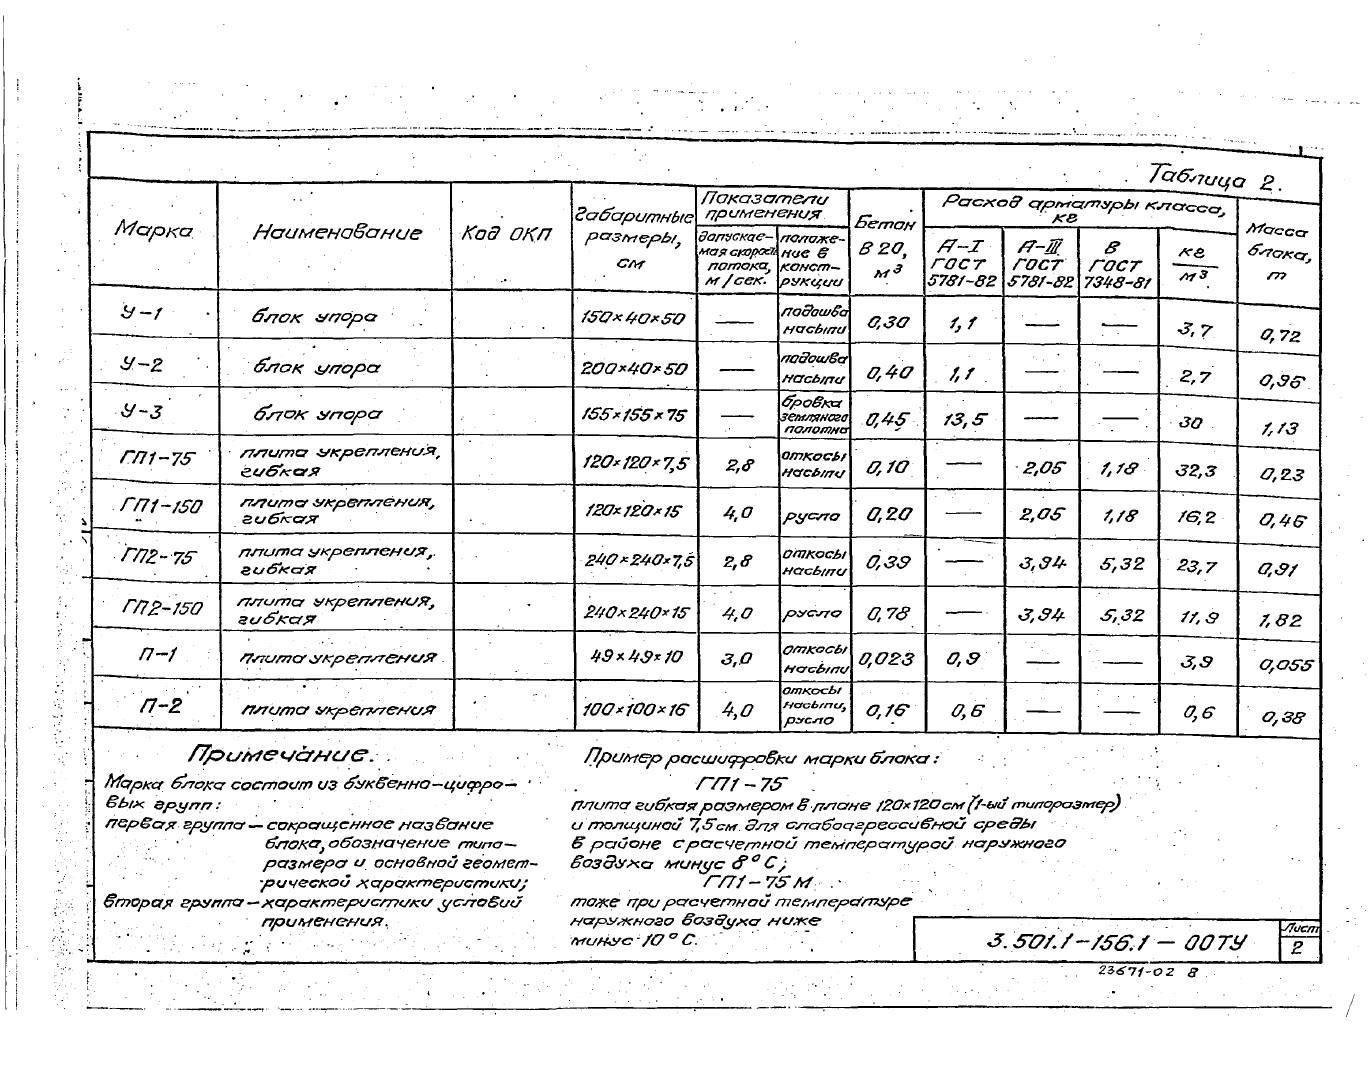 Таблица 2.
Марка
Наименование
Код ОКП
Габаритные
размеры,
см
Показатели
применения
допускае-
мая скорость
потока,
м/сек.
положе-
ние в
конст-
рукции
Бетон
В 20,
м³
Расход арматуры класса,
кг
А-I
ГОСТ
5781-82
А-III
ГОСТ
5781-82
В
ГОСТ
7348-81
кг
м³
Масса
блока,
т
У-1 блок упора 150×40×50 — подошва насыпи 0,30 1,1 — — 3,7 0,72
У-2 блок упора 200×40×50 — подошва насыпи 0,40 1,1 — — 2,7 0,96
У-3 блок упора 155×155×75 — бровка земляного полотна 0,45 13,5 — — 30 1,13
ГП1-75 плита укрепления, гибкая 120×120×7,5 2,8 откосы насыпи 0,10 — 2,05 1,18 32,3 0,23
ГП1-150 плита укрепления, гибкая 120×120×15 4,0 русло 0,20 — 2,05 1,18 16,2 0,46
ГП2-75 плита укрепления, гибкая 240×240×7,5 2,8 откосы насыпи 0,39 — 3,94 5,32 23,7 0,91
ГП2-150 плита укрепления, гибкая 240×240×15 4,0 русло 0,78 — 3,94 5,32 11,9 1,82
П-1 плита укрепления 49×49×10 3,0 откосы насыпи 0,023 0,9 — — 3,9 0,055
П-2 плита укрепления 100×100×16 4,0 откосы насыпи, русло 0,16 0,6 — — 0,6 0,38
Примечание.
Марка блока состоит из буквенно-цифро-
вых групп:
первая группа — сокращенное название
блока, обозначение типо-
размера и основной геомет-
рической характеристики;
вторая группа — характеристики условий
применения.
Пример расшифровки марки блока:
ГП1-75
плита гибкая размером в плане 120×120 см (1-ый типоразмер)
и толщиной 7,5 см для слабоагрессивной среды
в районе с расчетной температурой наружного
воздуха минус 8°С;
ГП1-75 М
тоже при расчетной температуре
наружного воздуха ниже
минус 10°С.
3.501.1-156.1-00ТУ
Лист
2
23671-02 8